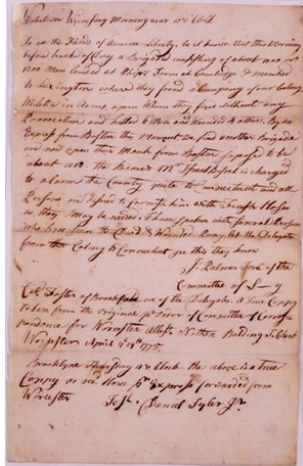 Wednesday Morning near 10 o Clock
To all the Friends of American Liberty, be it known that this Morning
before break of Day a Brigade consisting of about 1000 or
1200 Men landed at Phips's Farm at Cambridge & marched
to Lexington where they found a Company of our Colony
Militia in Arms, upon whom they fired without any
Provocation and killed 6 Men and Wounded 4 others. By an
Express from Boston this Moment we find another Brigade
are now upon their March from Boston supposed to be
about 1000. the Bearer Mr Israel Bissel is charged
to alarm the Country quite to Connecticut and all
Persons are desired to furnish him with Fresh Horses
as they may be needed. I have spoken with several Persons
who have seen the Dead & Wounded. Pray let the Delegates
from this Colony to Connecticut see this they know
J. Palmer one of the
Committee of
Col. Foster of Brookfield one of the Delegates. A true Coppy
taken from the original pr Order of Committee of Corres-
pondence for Worcester Attest. Nathan Balding T. Clerk
Worcester April 19th 1775
Brooklyne Thursday 11 o Clock the above is a true
Coppy as recd here pr Express forwarded from
Worcester
Test Daniel Tyler Jr